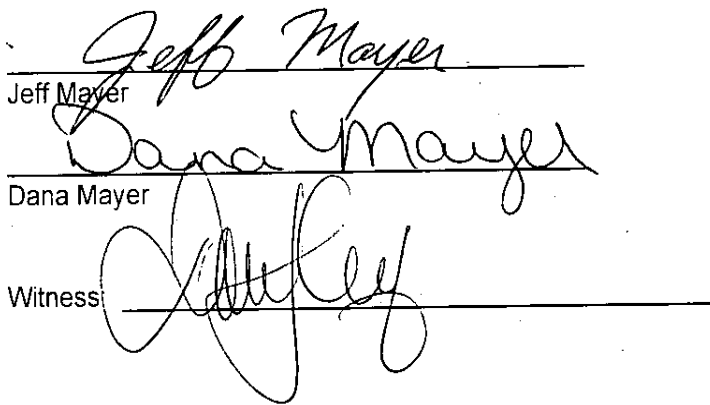 Jeff Mayer
Jeff Mayer
Dana Mayer
Dana Mayer
Witness